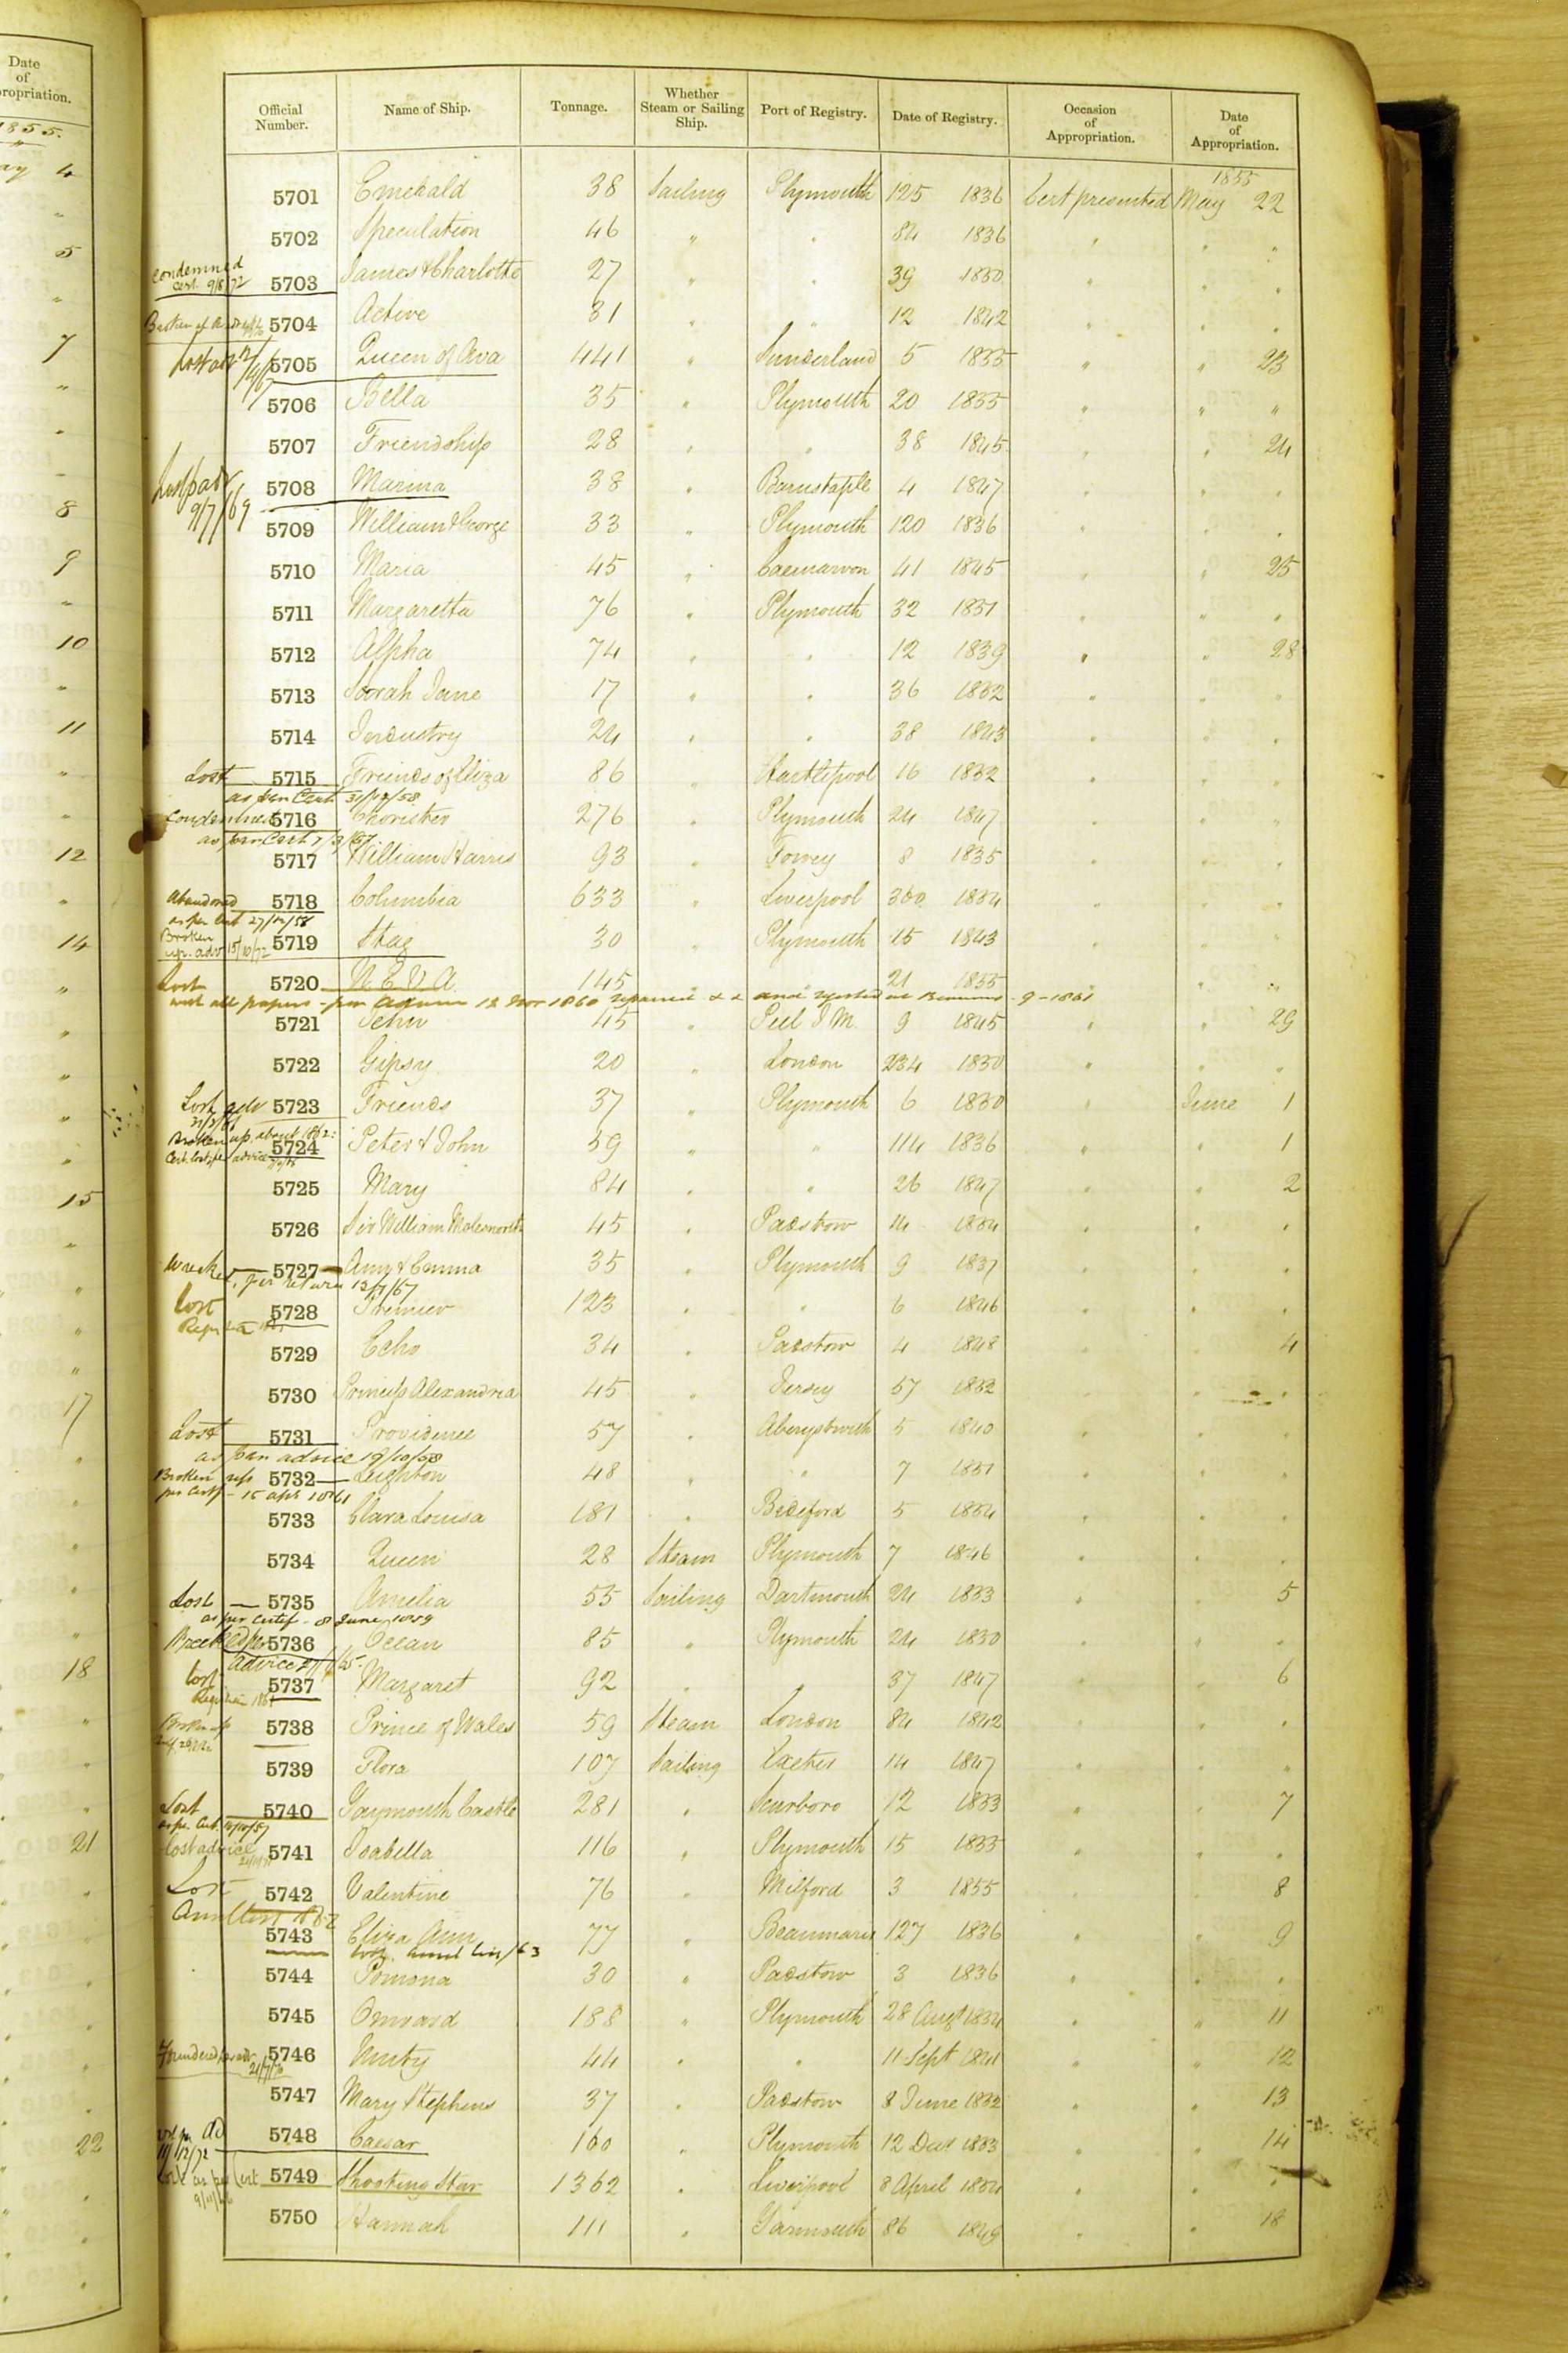 Date
of
ropriation.
1855.
ay 4
5
7
8
9
10
11
12
14
15
17
18
21
22
Official Number. Name of Ship. Tonnage. Whether Steam or Sailing Ship. Port of Registry. Date of Registry. Occasion of Appropriation. Date of Appropriation.
1855
5701 Emerald 38 Sailing Plymouth 125 1836 Cert presented May 22
5702 Speculation 46 " " 84 1836 " " "
condemned cert. 9/8/72 5703 James & Charlotte 27 " " 39 1850 " " "
5704 Active 31 " " 12 1842 " " "
Lost adv 5705 Queen of Ava 441 " Sunderland 5 1855 " " 23
5706 Bella 35 " Plymouth 20 1855 " " "
5707 Friendship 28 " " 38 1845 " " 24
9/7/69 5708 Marina 38 " Barnstaple 4 1847 " " "
5709 William & George 33 " Plymouth 120 1836 " " "
5710 Maria 45 " Caernarvon 41 1845 " " 25
5711 Margaretta 76 " Plymouth 32 1851 " " "
5712 Alpha 74 " " 12 1839 " " 28
5713 Sarah Jane 17 " " 36 1852 " " "
5714 Industry 24 " " 38 1843 " " "
Lost 5715 Friends of Eliza 86 " Hartlepool 16 1832 " " "
as per Cert 31/12/58
Condemned 5716 Chorister 276 " Plymouth 24 1847 " " "
as per Cert
5717 William Harris 93 " Fowey 8 1835 " " "
Abandoned 5718 Columbia 633 " Liverpool 360 1854 " " "
as per Cert 27/12/58
Broken up. adv 15/10/72 5719 Stag 30 " Plymouth 15 1843 " " "
Lost 5720 N. E. V. A. 145 " " 21 1855 " " "
with all papers - per 12 Nov 1860 and
5721 John 45 " Peel I M. 9 1845 " " 29
5722 Gipsy 20 " London 234 1850 " " "
Lost adv 5723 Friends 37 " Plymouth 6 1850 " June 1
Broken up about 1862: 5724 Peter & John 59 " " 114 1836 " " 1
5725 Mary 84 " " 26 1847 " " 2
5726 Sir William Molesworth 45 " Padstow 14 1854 " " "
Wrecked, 5727 Amy & Emma 35 " Plymouth 9 1837 " " "
per return 13/7/67
Lost 5728 Premier 123 " " 6 1846 " " "
5729 Echo 34 " Padstow 4 1848 " " 4
5730 Princess Alexandria 45 " Jersey 57 1852 " " "
Lost 5731 Providence 57 " Aberystwith 5 1840 " " "
as per advice 19/10/68
Broken up 5732 Leighton 48 " " 7 1851 " " "
per Certf - 15 apl 1861
5733 Clara Louisa 181 " Bideford 5 1854 " " "
5734 Queen 28 Steam Plymouth 7 1846 " " "
Lost 5735 Amelia 55 Sailing Dartmouth 24 1853 " " 5
as per Certif - 8 June 1859
5736 Ocean 85 " Plymouth 24 1850 " " "
advice
Lost 5737 Margaret 92 " " 37 1847 " " 6
Broken up 5738 Prince of Wales 59 Steam London 84 1842 " " "
5739 Flora 107 Sailing Exeter 14 1847 " " "
Lost 5740 Taymouth Castle 281 " Scarboro 12 1853 " " 7
as per Cert.
Lost advice 5741 Isabella 116 " Plymouth 15 1855 " " "
Lost 5742 Valentine 76 " Milford 3 1855 " " 8
5743 Eliza Ann 77 " Beaumaris 127 1836 " " 9
5744 Pomona 30 " Padstow 3 1836 " " "
5745 Onward 188 " Plymouth 28 Augt 1854 " " 11
Foundered 5746 Unity 44 " " 11 Sept 1841 " " 12
5747 Mary Stephens 37 " Padstow 8 June 1852 " " 13
11/12/72 5748 Caesar 160 " Plymouth 12 Decr 1853 " " 14
Lost as per Cert 5749 Shooting Star 1362 " Liverpool 8 April 1854 " " "
5750 Hannah 111 " Yarmouth 86 1849 " " 18